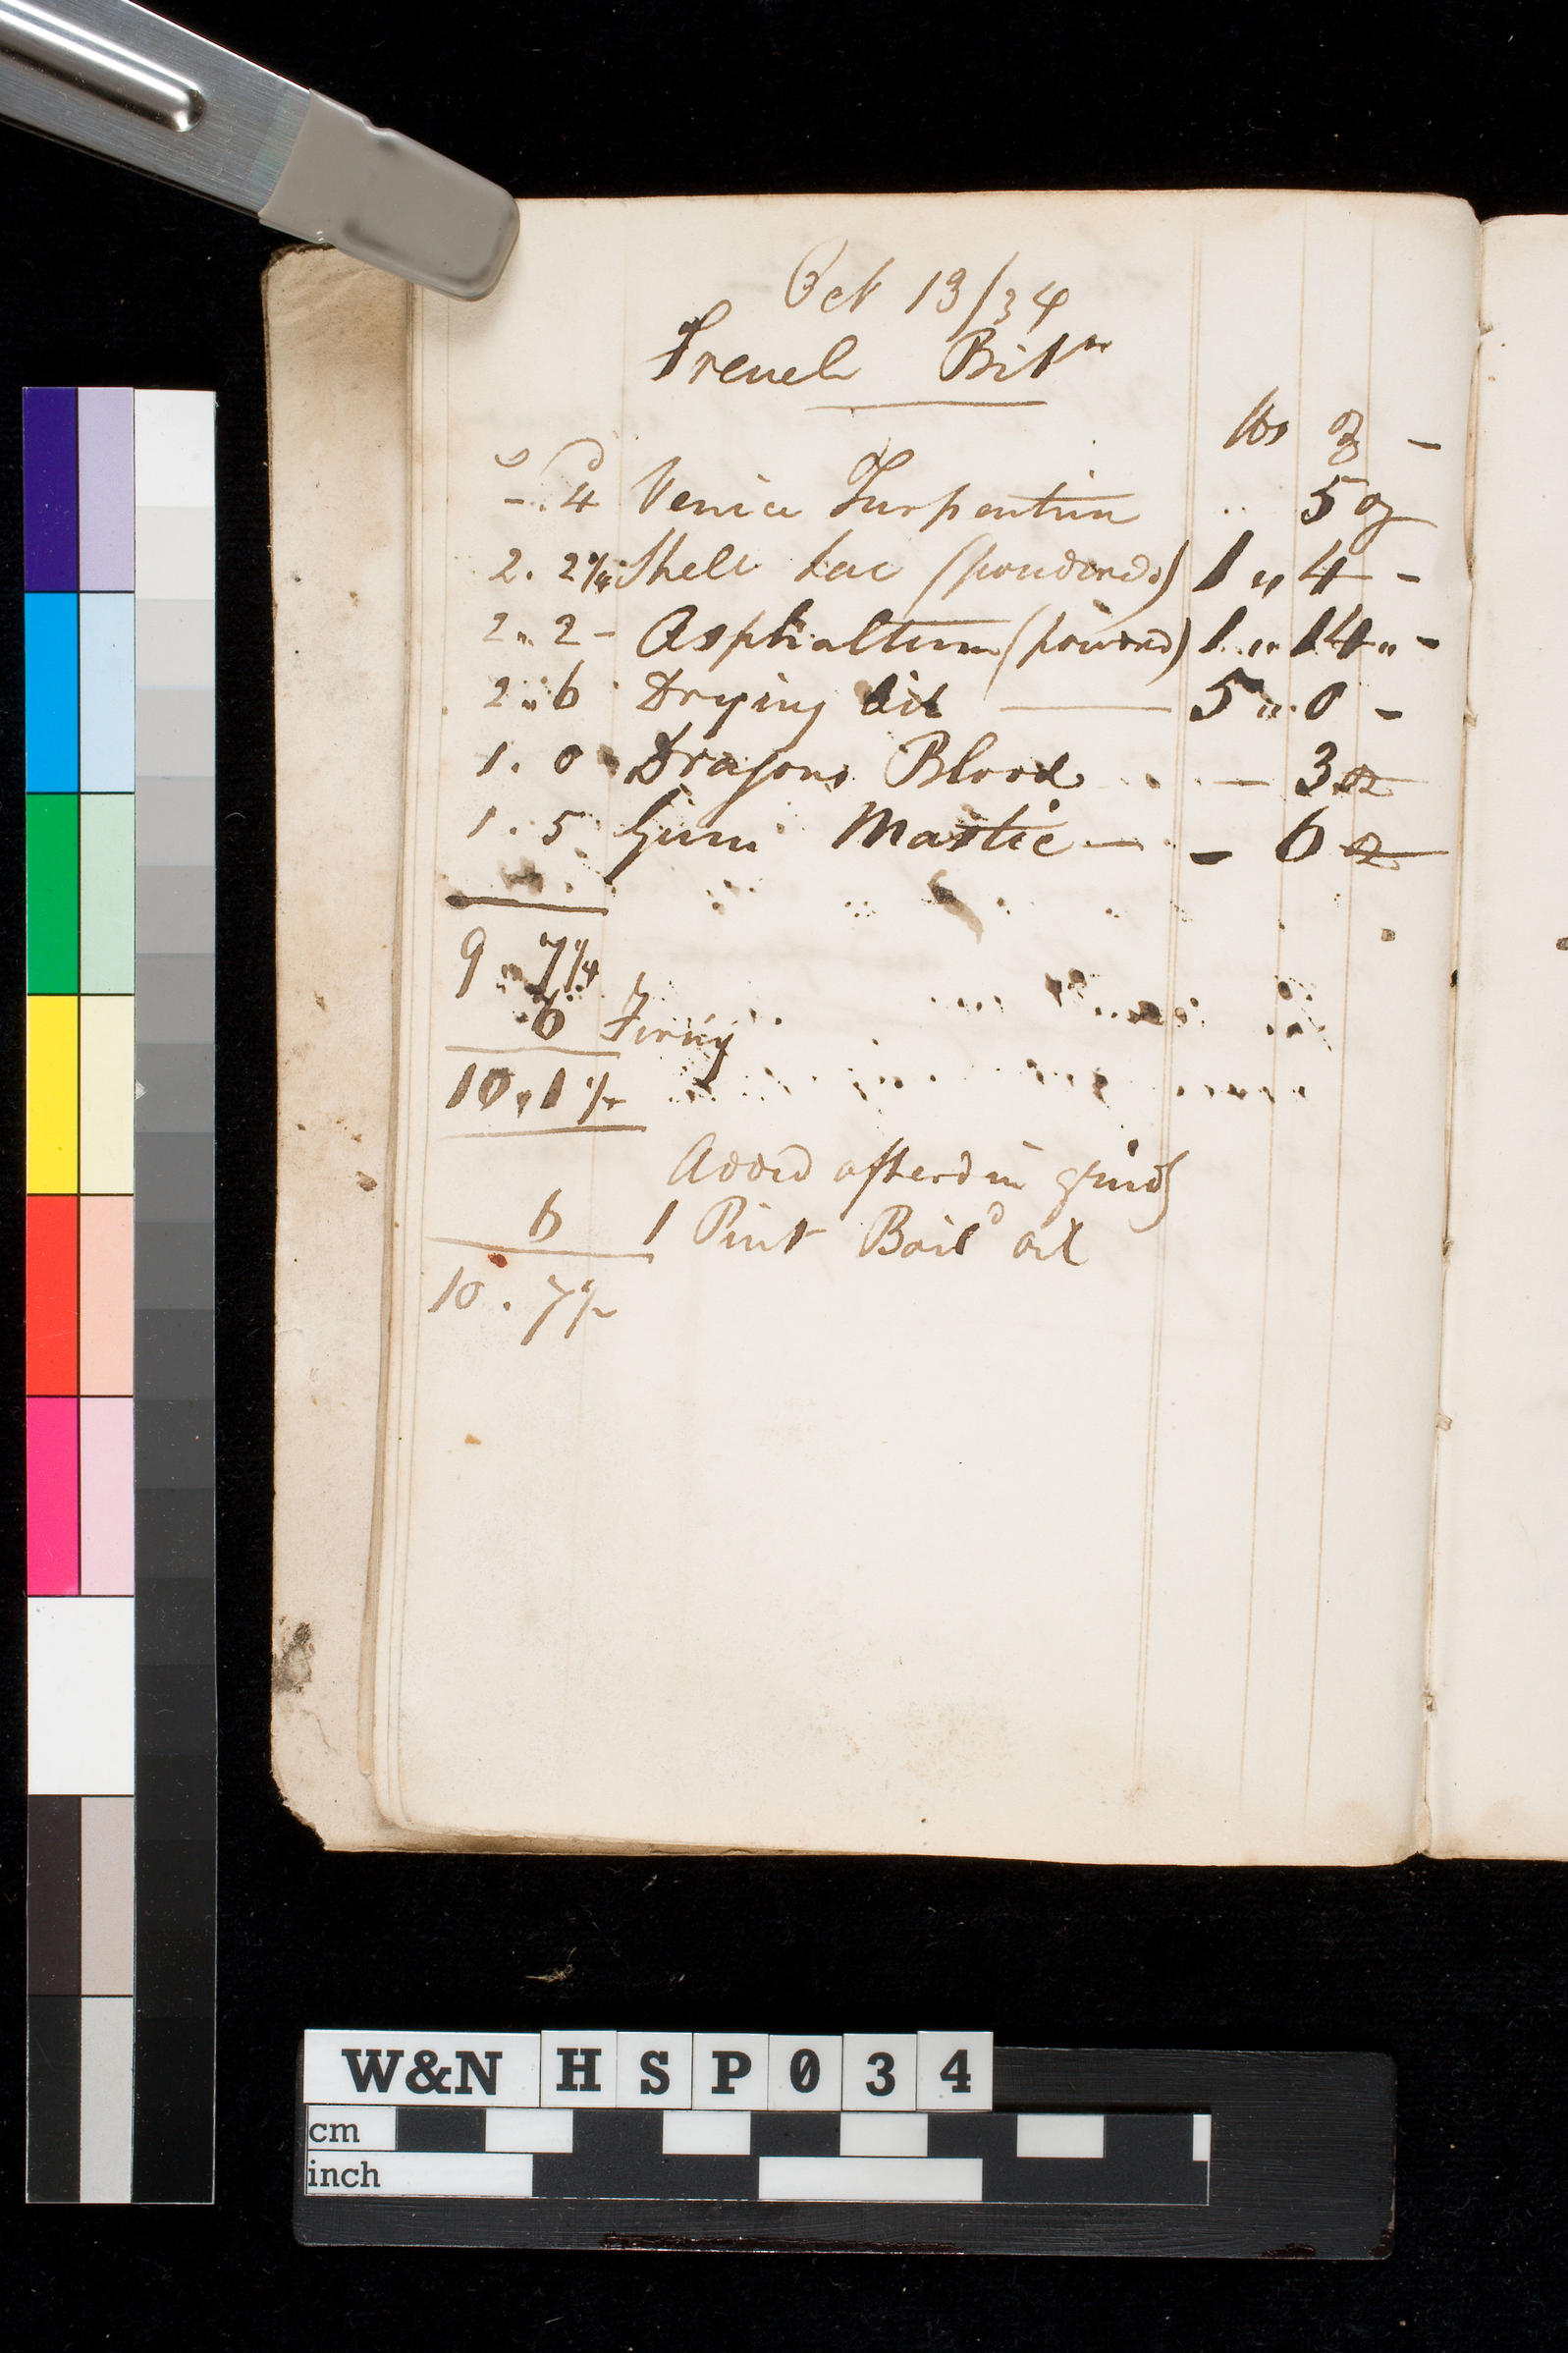 Oct 13/34
French Bitn
s d lbs oz -
- . 4 Venice Turpentine .. 5 oz
2 . 2 1/4 Shell Lac (powdered) 1 " 4 -
2 " 2 - Asphaltum (powerd) 1 " 14 " -
2 " 6 Drying Oil — 5 " 0 -
1 . 0 Dragons Blood — 3 oz
1 . 5 Gum Mastic — - 6 oz
9 " 7 1/4
6 Firing
10 " 1 1/4
Added afterd in grindg
6 1 Pint Boild oil
10 . 7 1/4
W&N HSP034
cm
inch